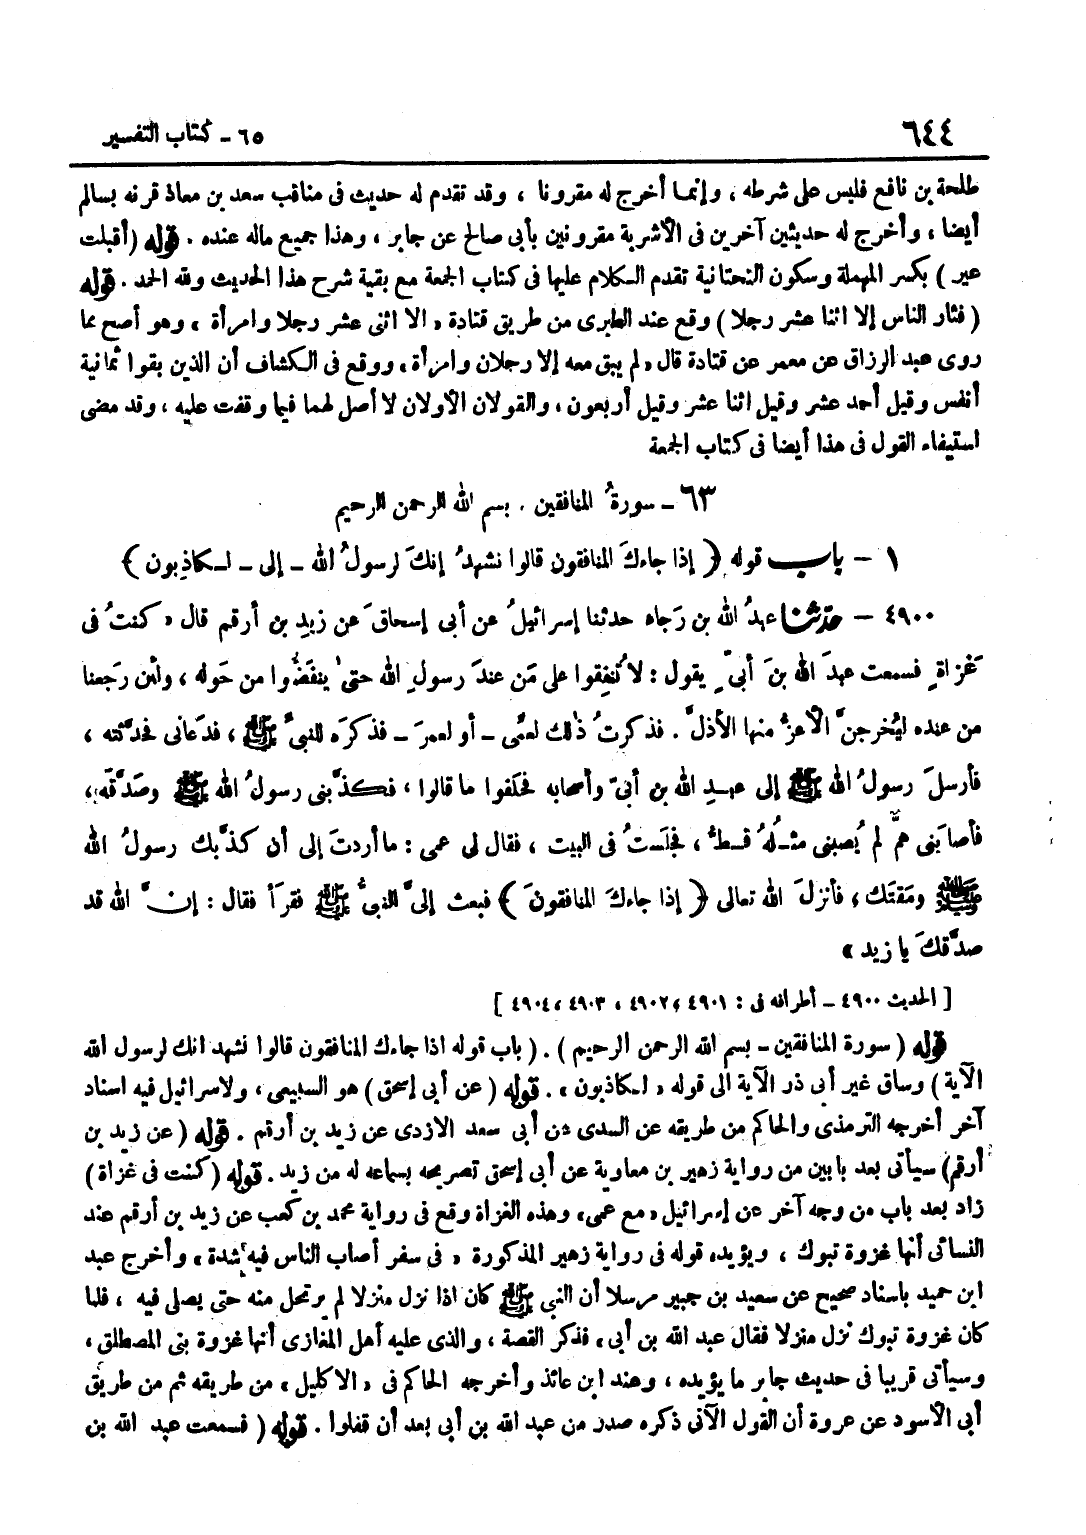 ٦٤٤
٦٥ - كتاب التفسير
طلحة بن نافع فليس على شرطه ، وإنما أخرج له مقرونا ، وقد تقدم له حديث فى مناقب سعد بن معاذ قرنه بسالم
أيضا ، وأخرج له حديثين آخرين فى الأشربة مقرونين بأبى صالح عن جابر ، وهذا جميع ماله عنده . قوله (أقبلت
عير ) بكسر المهملة وسكون التحتانية تقدم الكلام عليها فى كتاب الجمعة مع بقية شرح هذا الحديث ولله الحمد . قوله
( فثار الناس إلا اثنا عشر رجلا ) وقع عند الطبرى من طريق قتادة « الا اثنى عشر رجلا وامرأة ، وهو أصح مما
روى عبد الرزاق عن معمر عن قتادة قال « لم يبق معه إلا رجلان وامرأة ، ووقع فى الكشاف أن الذين بقوا ثمانية
أنفس وقيل أحد عشر وقيل اثنا عشر وقيل أربعون ، والقولان الأولان لا أصل لهما فيما وقفت عليه ، وقد مضى
استيفاء القول فى هذا أيضا فى كتاب الجمعة
٦٣ - سورةُ المنافقين . بسم الله الرحمن الرحيم
١ - باب قوله ﴿ إذا جاءكَ المنافقون قالوا نشهدُ إنكَ لرسولُ الله - إلى - لكاذِبون ﴾
٤٩٠٠ - حدّثنا عبدُ الله بن رَجاء حدثنا إسرائيلُ عن أبى إسحاقَ عن زيدِ بن أرقم قال « كنتُ فى
غَزاةٍ فسمعت عبدَ الله بنَ أبىّ يقول : لا تُنفِقوا على مَن عندَ رسولِ الله حتىٰ ينفَضُّوا من حَوله ، ولئن رَجعنا
من عنده ليُخرجنَّ الأعزُّ منها الأذلَّ . فذكرتُ ذٰلك لعمِّى - أو لعمرَ - فذكرَه للنبىِّ ﷺ ، فدعَانى فحدَّثته ،
فأرسلَ رسولُ الله ﷺ إلى عبدِ الله بن أبىّ وأصحابه فحَلفوا ما قالوا ، فكذَّبنى رسولُ الله ﷺ وصَدَّقه ،
فأصابَنى همٌّ لم يُصبنى مثلُهُ قطُّ ، فجلَستُ فى البيت ، فقال لى عمى : ما أردتَ إلى أن كذَّبك رسولُ الله
ﷺ ومَقتَك ، فأنزلَ الله تعالى ﴿ إذا جاءكَ المنافقونَ ﴾ فبعث إلىَّ النبىُّ ﷺ فقرَأ فقال : إنَّ الله قد
صدَّقكَ يا زيد »
[ الحديث ٤٩٠٠ - أطرافه فى : ٤٩٠١ ، ٤٩٠٢ ، ٤٩٠٣ ، ٤٩٠٤ ]
قوله ( سورة المنافقين - بسم الله الرحمن الرحيم ) . ( باب قوله اذا جاءك المنافقون قالوا نشهد انك لرسول الله
الآية ) وساق غير أبى ذر الآية الى قوله « لكاذبون » . قوله ( عن أبى إسحق ) هو السبيعى ، ولاسرائيل فيه اسناد
آخر أخرجه الترمذى والحاكم من طريقه عن السدى عن أبى سعد الازدى عن زيد بن أرقم . قوله ( عن زيد بن
أرقم) سيأتى بعد بابين من رواية زهير بن معاوية عن أبى إسحق تصريحه بسماعه له من زيد . قوله ( كنت فى غزاة )
زاد بعد باب من وجه آخر عن إسرائيل « مع عمى ، وهذه الغزاة وقع فى رواية محمد بن كعب عن زيد بن أرقم عند
النسائى أنها غزوة تبوك ، ويؤيده قوله فى رواية زهير المذكورة « فى سفر أصاب الناس فيه شدة ، وأخرج عبد
ابن حميد باسناد صحيح عن سعيد بن جبير مرسلا أن النبى ﷺ كان اذا نزل منزلا لم يرتحل منه حتى يصلى فيه ، فلما
كان غزوة تبوك نزل منزلا فقال عبد الله بن أبى ، فذكر القصة ، والذى عليه أهل المغازى أنها غزوة بنى المصطلق ،
وسيأتى قريبا فى حديث جابر ما يؤيده ، وعند ابن عائذ وأخرجه الحاكم فى « الاكليل ، من طريقه ثم من طريق
أبى الأسود عن عروة أن القول الآتى ذكره صدر من عبد الله بن أبى بعد أن قفلوا . قوله ( فسمعت عبد الله بن